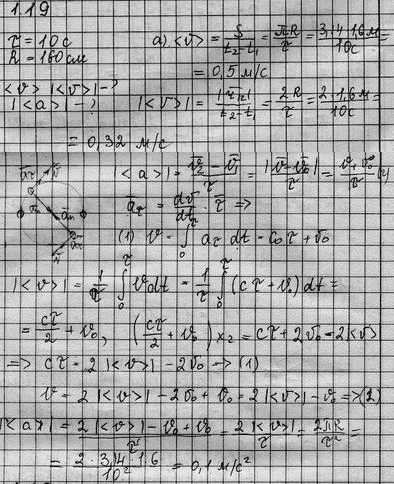 1.19
τ = 10 c
R = 160 см
<v> |<v>| - ?
|<a>| - ?
a) <v> = S/(t₂-t₁) = πR/τ = 3,14·1,6 м/10 c =
= 0,5 м/с
|<v>| = |r₁₂|/(t₂-t₁) = 2R/τ = 2·1,6 м/10 c =
= 0,32 м/с
|<a>| = (v̄₂-v̄₁)/τ = |v̄-v̄₀|/τ = (v+v₀)/τ (2)
ā_τ = dv/dt · τ̄ ⇒
(1) v = ∫₀^τ a_τ dt = cτ + v₀
|<v>| = 1/τ ∫₀^τ v dt = 1/τ ∫₀^τ (cτ + v₀) dt =
= cτ/2 + v₀, (cτ/2 + v₀) ×2 = cτ + 2v₀ = 2|<v>|
=> cτ = 2|<v>| - 2v₀ -> (1)
v = 2|<v>| - 2v₀ + v₀ = 2|<v>| - v₀ => (2)
|<a>| = (2|<v>| - v₀ + v₀)/τ = 2|<v>|/τ = 2πR/τ² =
= 2·3,14·1,6/10² = 0,1 м/с²